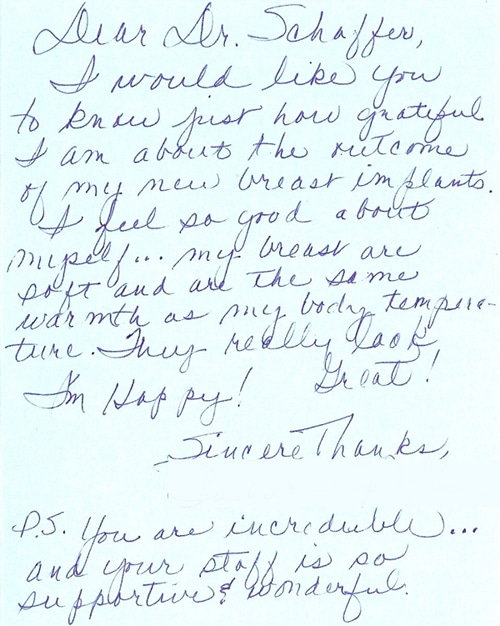 Dear Dr. Schaffer,
I would like you
to know just how grateful
I am about the outcome
of my new breast implants.
I feel so good about
myself... my breast are
soft and are the same
warmth as my body tempera-
ture. They really look
I'm Happy! Great!
Sincere Thanks,
P.S. You are incredible...
and your staff is so
supportive & wonderful.